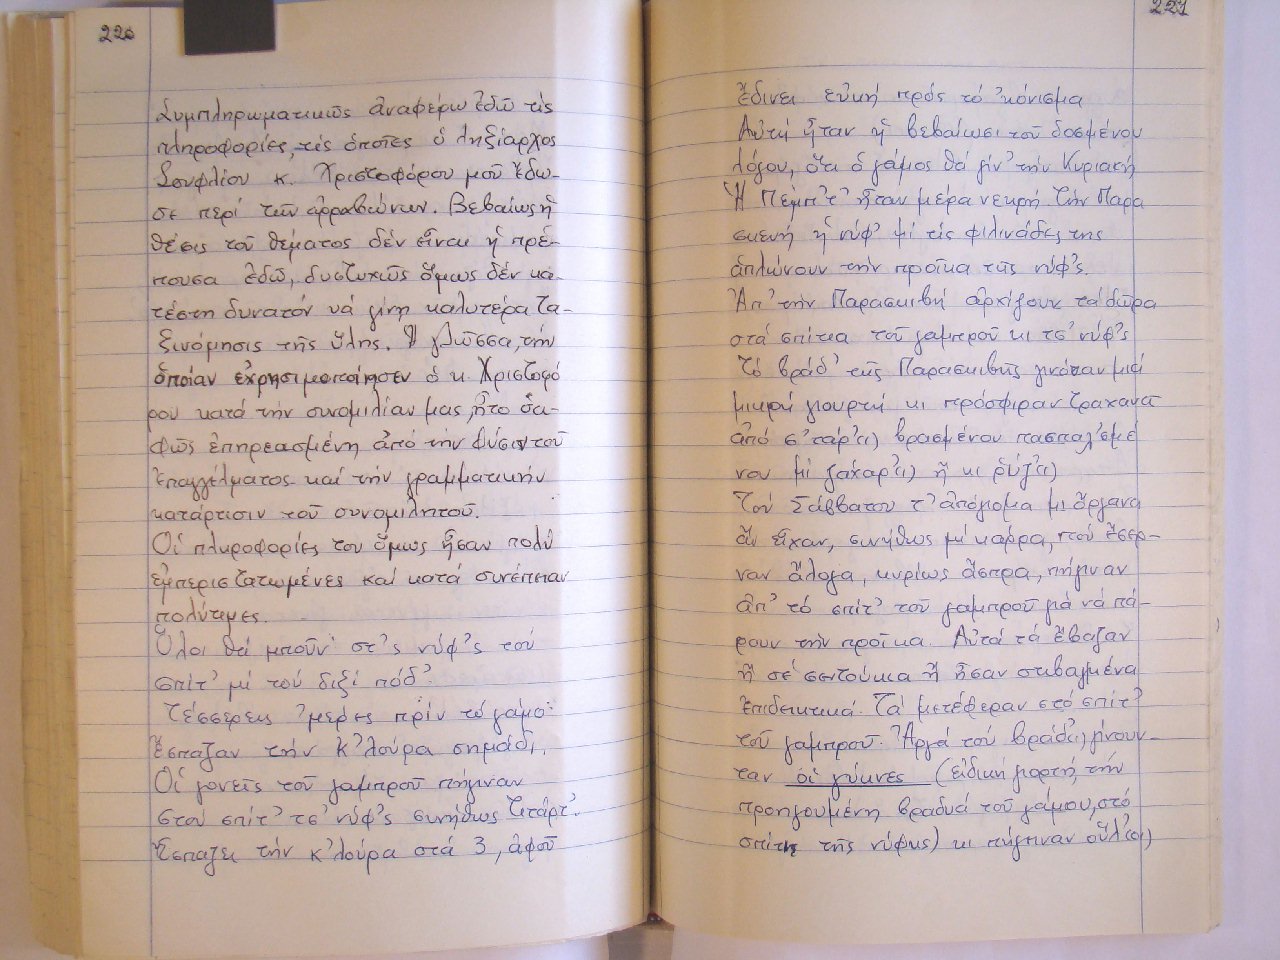 220
Συμπληρωματικῶς ἀναφέρω ἐδῶ τίς
πληροφορίες, τίς ὁποῖες ὁ ληξίαρχος
Σουφλίου κ. Χριστοφόρου μοῦ ἔδω-
σε περί τῶν ἀρραβώνων. Βεβαίως ἡ
θέσις τοῦ θέματος δέν εἶναι ἡ πρέ-
πουσα ἐδῶ, δυστυχῶς ὅμως δέν κα-
τέστη δυνατόν νά γίνη καλυτέρα τα-
ξινόμησις τῆς ὕλης. Ἡ γλῶσσα, τήν
ὁποίαν ἐχρησιμοποίησεν ὁ κ. Χριστοφό
ρου κατά τήν συνομιλίαν μας, ἦτο σα-
φῶς ἐπηρεασμένη ἀπό τήν φύσιν τοῦ
ἐπαγγέλματος καί τήν γραμματικήν
κατάρτισιν τοῦ συνομιλητοῦ.
Οἱ πληροφορίες του ὅμως ἦσαν πολύ
ἐμπεριστατωμένες καί κατά συνέπειαν
πολύτιμες.
Ὅλοι θά μποῦν στ'ς νύφ'ς τού
σπίτ' μί τού διξί πόδ'.
Τέσσερεις 'μέρες πρίν τό γάμο
ἔσπαζαν τήν κ'λούρα σημάδι.
Οἱ γονεῖς τοῦ γαμπροῦ πήγιναν
στού σπίτ' τσ' νύφ'ς συνήθως Τετάρτ'.
Ἔσπαζει τήν κ'λούρα στά 3, ἀφοῦ
221
ἔδινει εὐκή πρός τό 'κόνισμα
Αὐτή ἦταν ἡ βεβαίωσι τοῦ δοσμένου
λόγου, ὅτι ὁ γάμος θά γίν' τήν Κυριακή
Ἡ Πέμπ'τ' ἦταν μέρα νεκρή. Τήν Παρα
σκευή ἡ νύφ' μί τίς φιλινάδες της
ἁπλώνουν τήν προῖκα τῆς νύφ'ς.
Ἀπ' τήν Παρασκιβή ἀρχίζουν τά δῶρα
στά σπίτια τοῦ γαμπροῦ κι τσ' νύφ'ς
Τό βράδ' τῆς Παρασκιβῆς γινόταν μιά
μικρή γιουρτή κι πρόσφιραν τραχανα
ἀπό σ'τάρ'(ι) βρασμένου πασπαλ'σμέ
νου μί ζάχαρ'(ι) ἤ κι ρύζ'(ι)
Τού Σάββατου τ' ἀπόγιομα μι ὄργανα
ἄν εἶχαν, συνήθως μέ κάρρα, πού ἔσερ-
ναν ἄλογα, κυρίως ἄσπρα, πήγιναν
ἀπ' τό σπίτ' τοῦ γαμπροῦ γιά νά πά-
ρουν τήν προῖκα. Αὐτά τά ἔβαζαν
ἤ σέ σεντούκια ἤ ἦσαν στιβαγμένα
ἐπιδεικτικά. Τά μετέφεραν στό σπίτ'
τοῦ γαμπροῦ. Ἀργά τού βράδ(υ) γίνουν-
ταν οἱ γύκνες (εἰδική γιορτή, τήν
προηγουμένη βραδυά τοῦ γάμου, στό
σπίτι τῆς νύφης) κι πήγιναν οὗλ'(οι)